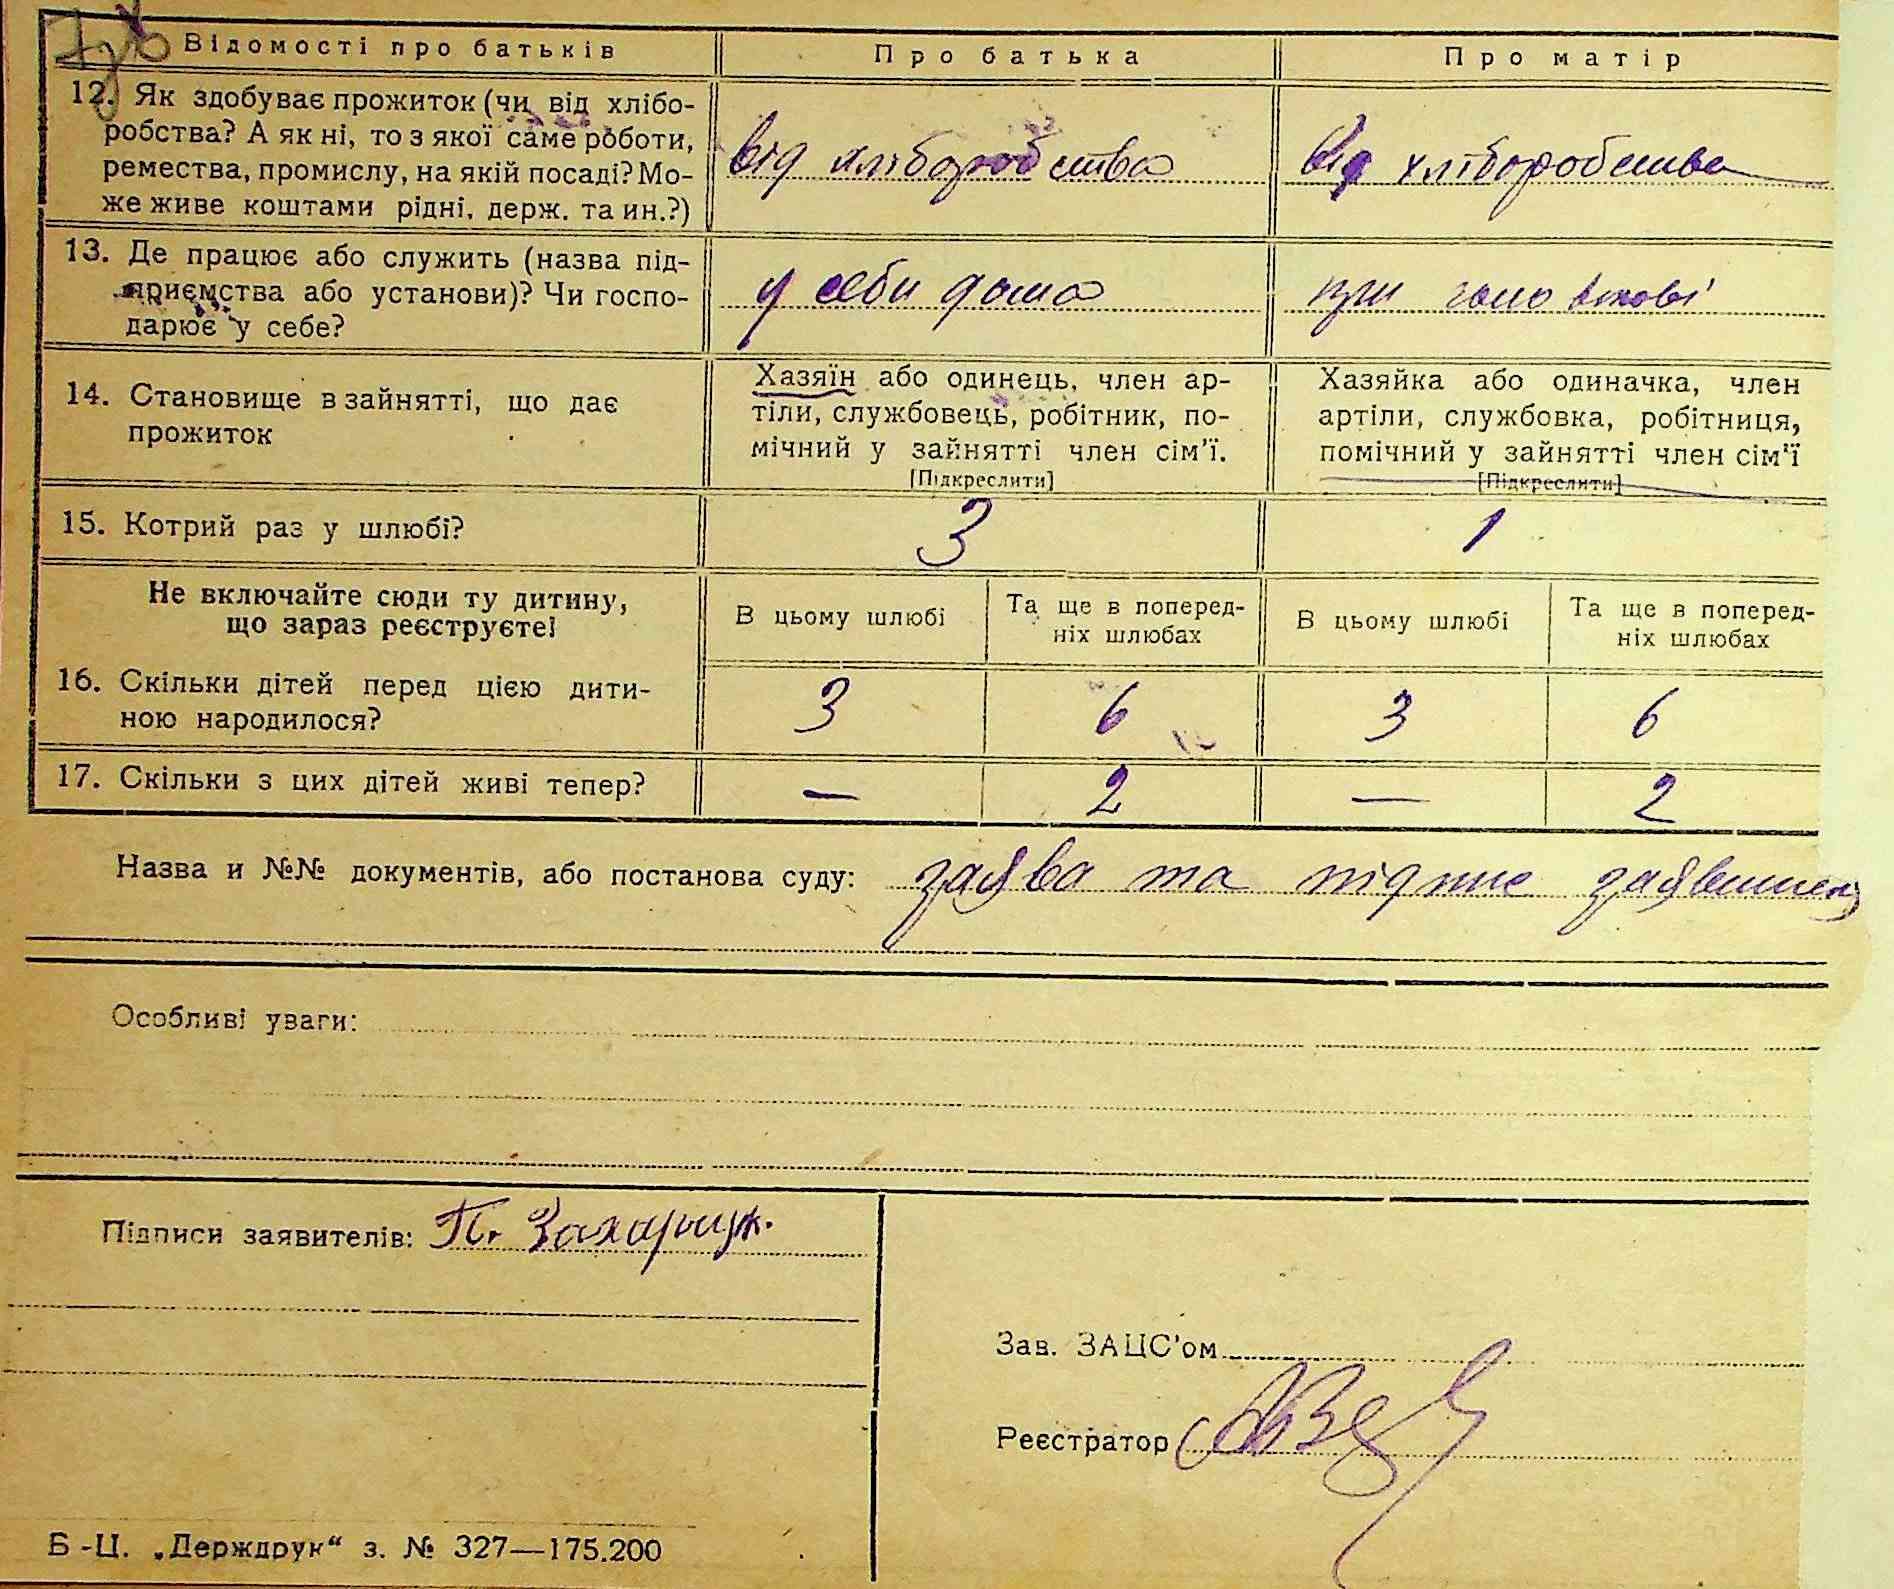 Відомості про батьків
Про батька
Про матір
12. Як здобуває прожиток (чи від хлібо-
робства? А як ні, то з якої саме роботи,
ремества, промислу, на якій посаді? Мо-
же живе коштами рідні, держ. та ин.?)
від хліборобства
від хліборобства
13. Де працює або служить (назва під-
приємства або установи)? Чи госпо-
дарює у себе?
у себи дома
при чоло викові
14. Становище в зайнятті, що дає
прожиток
Хазяїн або одинець, член ар-
тіли, службовець, робітник, по-
мічний у зайнятті член сім'ї.
[Підкреслити]
Хазяйка або одиначка, член
артіли, службовка, робітниця,
помічний у зайнятті член сім'ї
[Підкреслити]
15. Котрий раз у шлюбі?
3
1
Не включайте сюди ту дитину,
що зараз реєструєте!
В цьому шлюбі
Та ще в поперед-
ніх шлюбах
В цьому шлюбі
Та ще в поперед-
ніх шлюбах
16. Скільки дітей перед цією дити-
ною народилося?
3
6
3
6
17. Скільки з цих дітей живі тепер?
—
2
—
2
Назва и №№ документів, або постанова суду: заява та підпис
Особливі уваги:
Підписи заявителів: П. Захарчук.
Зав. ЗАЦС'ом
Реєстратор
Б-Ц. „Держдрук“ з. № 327—175.200